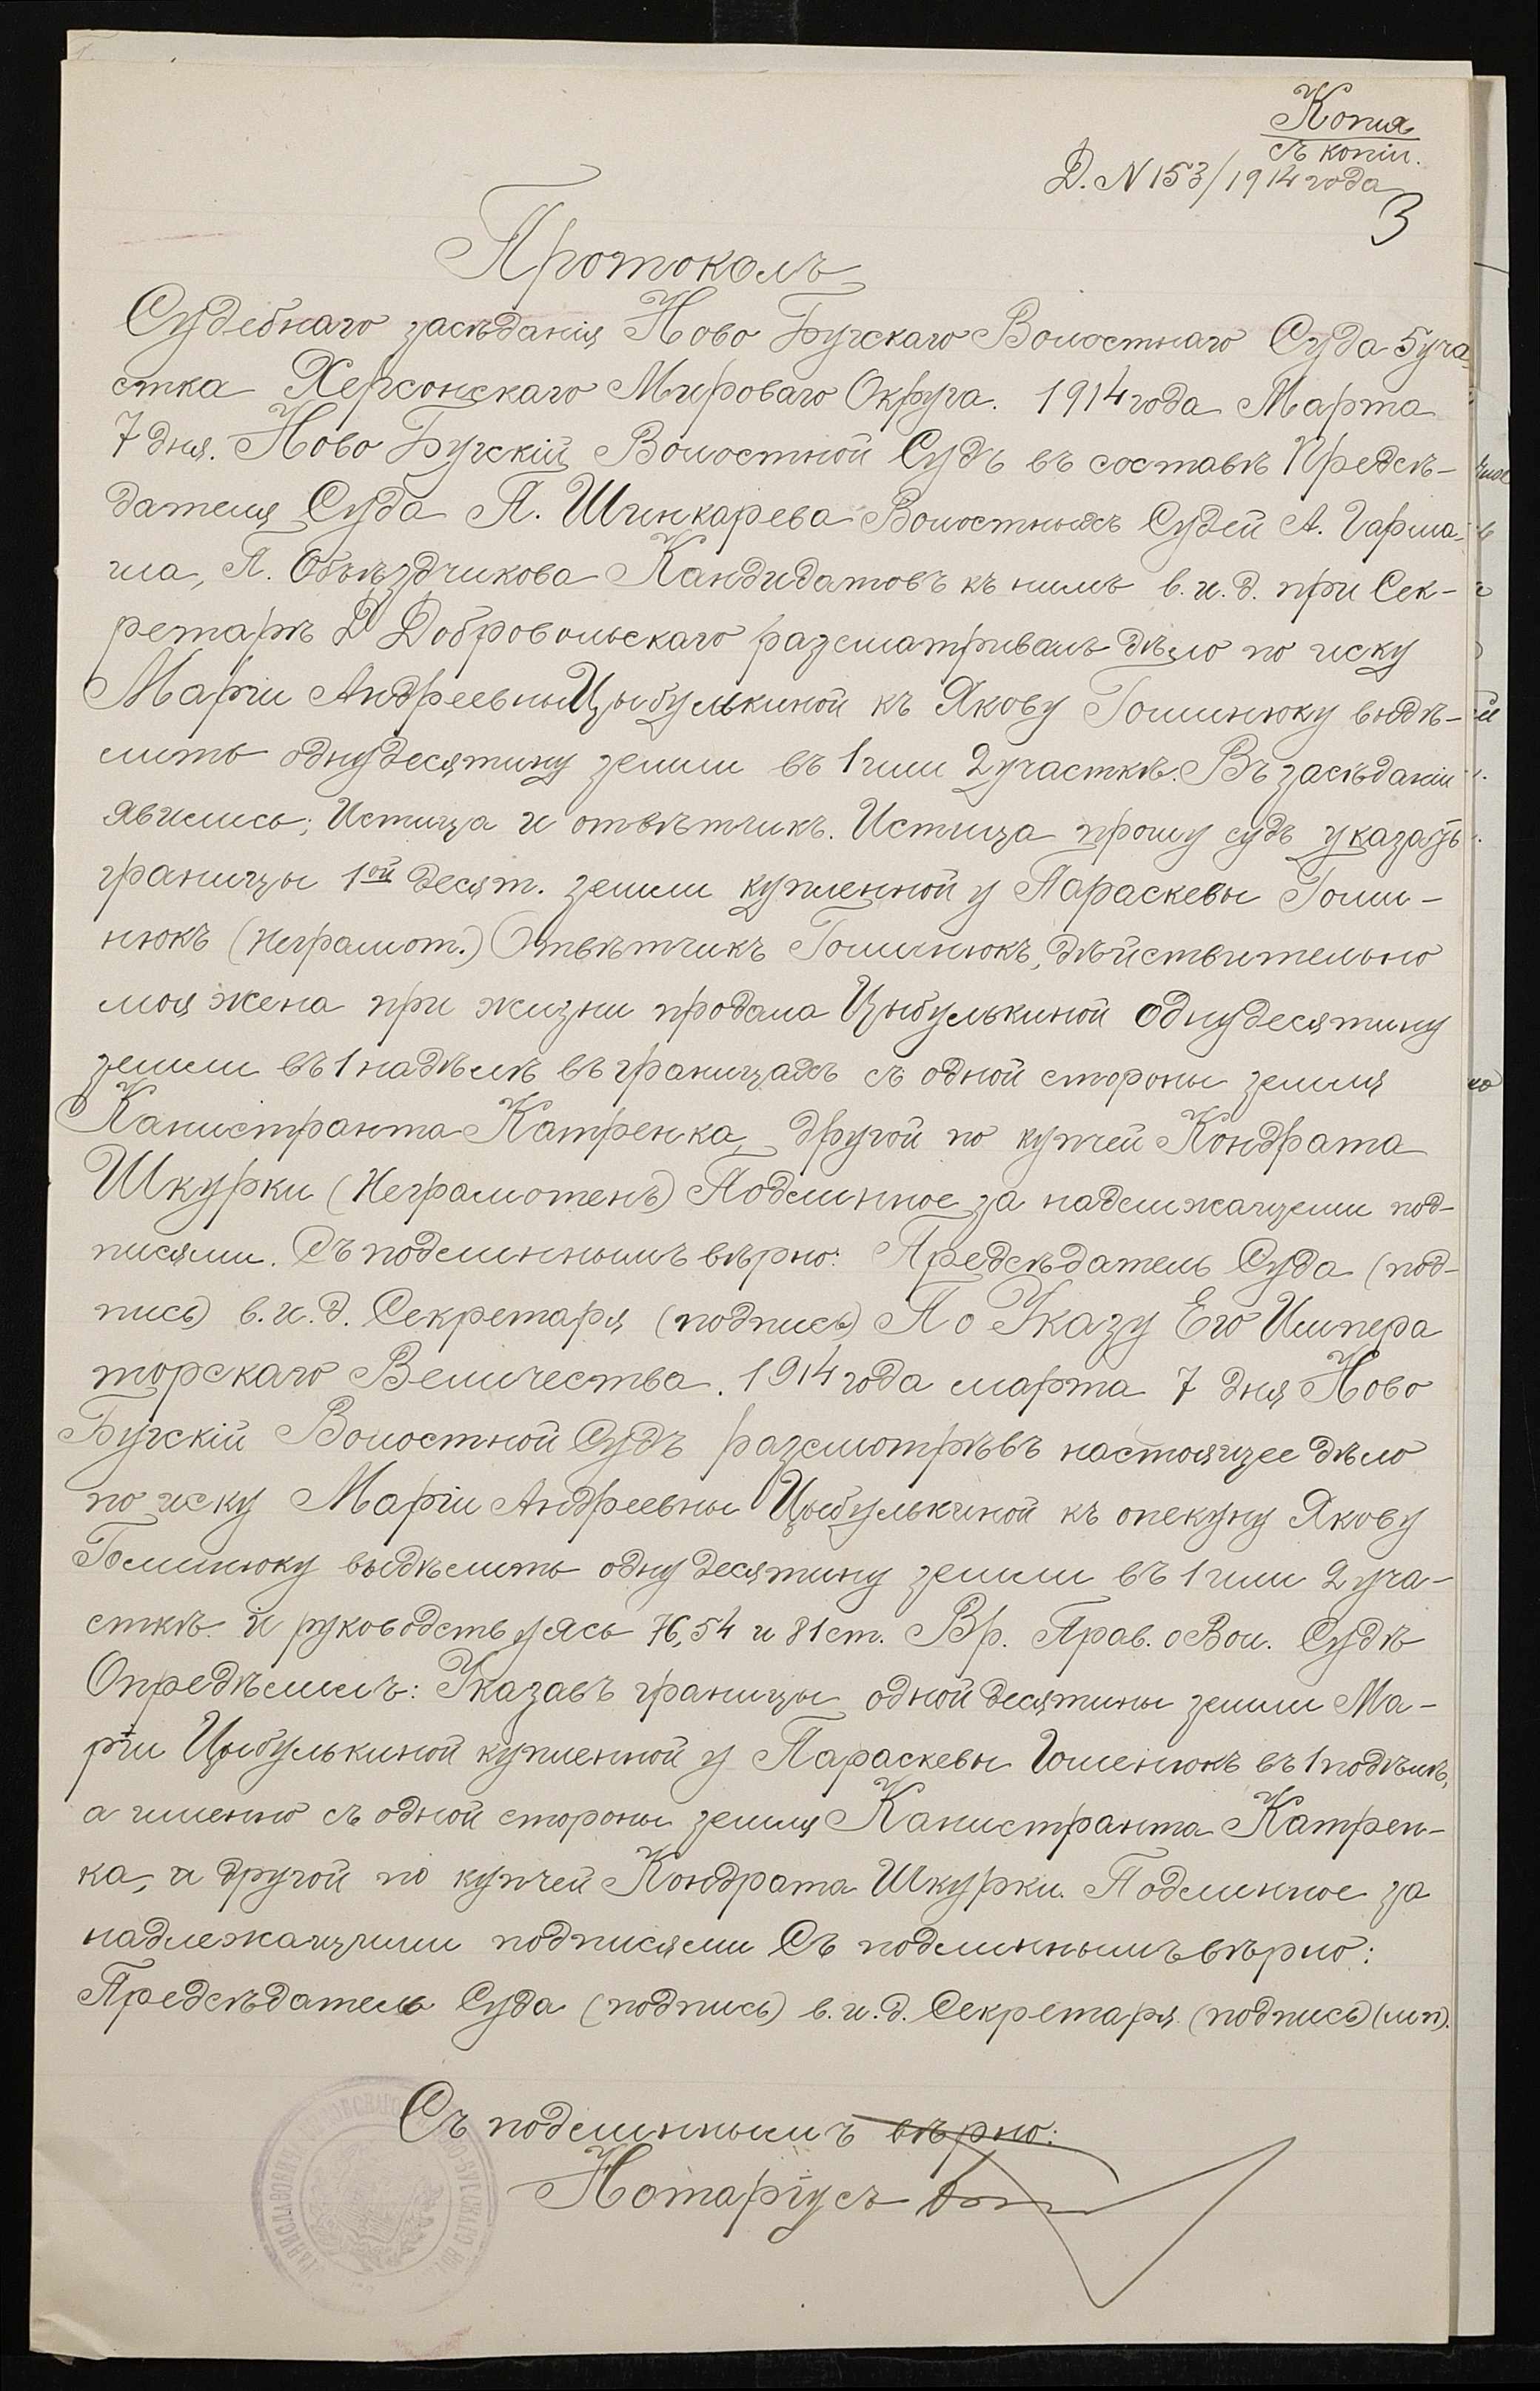 Копия
съ копіи.
Д. N 153/1914 года
3
Протоколъ
Судебнаго засѣданія Ново Бугскаго Волостнаго Суда 5 уча-
стка Херсонскаго Мироваго Округа. 1914 года Марта
7 дня. Ново Бугскій Волостной Судъ въ составѣ Предсѣ-
дателя Суда П. Шинкарева Волостныхъ Судей А. Гарма-
ша, П. Объѣздчикова Кандидатовъ къ нимъ в. и. д. при Сек-
ретарѣ Д Добровольскаго разсматривалъ дѣло по иску
Маріи Андреевны Цыбулькиной къ Якову Гоминюку выдѣ-
лить одну десятину земли въ 1 или 2 участкѣ. Въ засѣданіи
явились; Истица и отвѣтчикъ. Истица прошу судъ указать
границы 1ой десят. земли купленной у Параскевы Гоми-
нюкъ (неграмот.) Отвѣтчикъ Гоминюкъ, дѣйствительно
моя жена при жизни продала Цыбулькиной одну десятину
земли въ 1 надѣлѣ въ границахъ съ одной стороны земля
Канистранта Катренка, другой по купчей Кондрата
Шкурки (Неграмотенъ) Подлинное за надлежащеми под-
писями. Съ подлиннымъ вѣрно: Предсѣдатель Суда (под-
пись) в. и. д. Секретаря (подпись) По Указу Его Импера
торскаго Величества. 1914 года марта 7 дня Ново
Бугскій Волостной Судъ разсмотрѣвъ настоящее дѣло
по иску Маріи Андреевны Цыбулькиной къ опекуну Якову
Гоминюку выдѣлить одну десятину земли въ 1 или 2 уча-
сткѣ и руководствуясь 76, 54 и 81 ст. Вр. Прав. о Вол. Судѣ
Опредѣлилъ: Указавъ границы одной десятины земли Ма-
ріи Цыбулькиной купленной у Параскевы Гоменюкъ въ 1 подѣлѣ,
а именно съ одной стороны земля Канистранта Катрен-
ка, и другой по купчей Кондрата Шкурки. Подлинное за
надлежащими подписями Съ подлиннымъ вѣрно:
Предсѣдатель Суда (подпись) в. и. д. Секретаря (подпись) (мп).
Съ подлиннымъ вѣрно:
Нотаріусъ